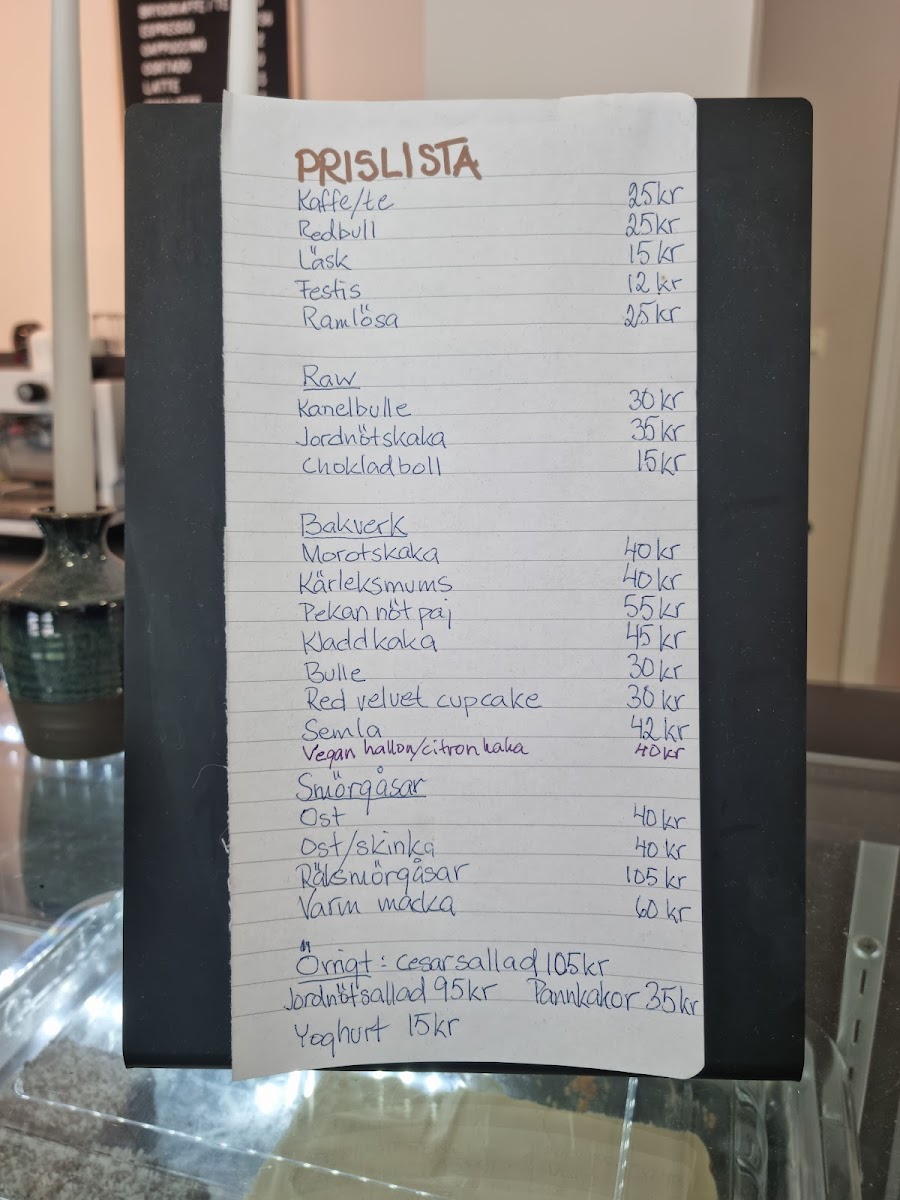 BRYGGKAFFE/TE
ESPRESSO
CAPPUCCINO
CORTADO
LATTE
PRISLISTA
Kaffe/te 25kr
Redbull 25kr
Läsk 15kr
Festis 12kr
Ramlösa 25kr
Raw
Kanelbulle 30kr
Jordnötskaka 35kr
Chokladboll 15kr
Bakverk
Morotskaka 40kr
Kärleksmums 40kr
Pekannötpaj 55kr
Kladdkaka 45kr
Bulle 30kr
Red velvet cupcake 30kr
Semla 42kr
Vegan hallon/citronkaka 40kr
Smörgåsar
Ost 40kr
Ost/skinka 40kr
Räksmörgåsar 105kr
Varm macka 60kr
Övrigt: cesarsallad 105kr
Jordnötsallad 95kr Pannkakor 35kr
Yoghurt 15kr